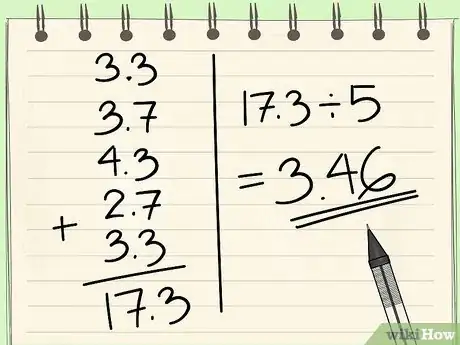 3.3
3.7
4.3
2.7
+ 3.3
17.3
17.3÷5
= 3.46
wikiHow